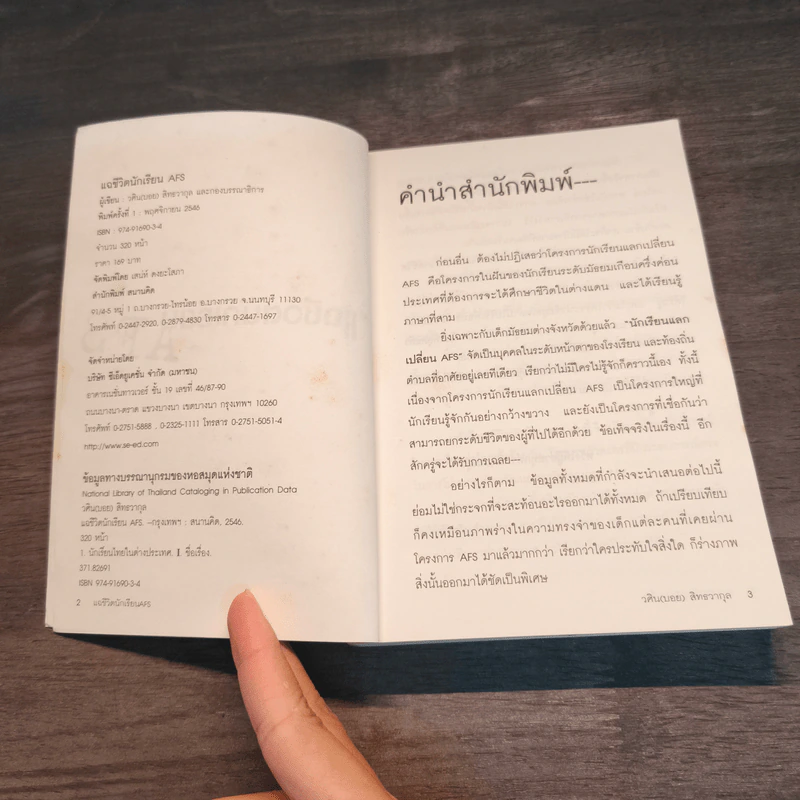 แฉชีวิตนักเรียน AFS
ผู้เขียน : วศิน(บอย) สิทธวากุล และกองบรรณาธิการ
พิมพ์ครั้งที่ 1 : พฤศจิกายน 2546
ISBN : 974-91690-3-4
จำนวน 320 หน้า
ราคา 169 บาท
จัดพิมพ์โดย เสน่ห์ คงยะโสภา
สำนักพิมพ์ สนานคิด
91/4-5 หมู่ 1 ถ.บางกรวย-ไทรน้อย อ.บางกรวย จ.นนทบุรี 11130
โทรศัพท์ 0-2447-2920, 0-2879-4830 โทรสาร 0-2447-1697
จัดจำหน่ายโดย
บริษัท ซีเอ็ดยูเคชั่น จำกัด (มหาชน)
อาคารเนชั่นทาวเวอร์ ชั้น 19 เลขที่ 46/87-90
ถนนบางนา-ตราด แขวงบางนา เขตบางนา กรุงเทพฯ 10260
โทรศัพท์ 0-2751-5888 , 0-2325-1111 โทรสาร 0-2751-5051-4
http://www.se-ed.com
ข้อมูลทางบรรณานุกรมของหอสมุดแห่งชาติ
National Library of Thailand Cataloging in Publication Data
วศิน(บอย) สิทธวากุล
แฉชีวิตนักเรียน AFS. --กรุงเทพฯ : สนานคิด, 2546.
320 หน้า
1. นักเรียนไทยในต่างประเทศ. I. ชื่อเรื่อง.
371.82691
ISBN 974-91690-3-4
2 แฉชีวิตนักเรียนAFS
คำนำสำนักพิมพ์---
ก่อนอื่น ต้องไม่ปฏิเสธว่าโครงการนักเรียนแลกเปลี่ยน
AFS คือโครงการในฝันของนักเรียนระดับมัธยมเกือบครึ่งค่อน
ประเทศที่ต้องการจะได้ศึกษาชีวิตในต่างแดน และได้เรียนรู้
ภาษาที่สาม
ยิ่งเฉพาะกับเด็กมัธยมต่างจังหวัดด้วยแล้ว "นักเรียนแลก
เปลี่ยน AFS" จัดเป็นบุคคลในระดับหน้าตาของโรงเรียน และท้องถิ่น
ตำบลที่อาศัยอยู่เลยทีเดียว เรียกว่าไม่มีใครไม่รู้จักก็คราวนี้เอง ทั้งนี้
เนื่องจากโครงการนักเรียนแลกเปลี่ยน AFS เป็นโครงการใหญ่ที่
นักเรียนรู้จักกันอย่างกว้างขวาง และยังเป็นโครงการที่เชื่อกันว่า
สามารถยกระดับชีวิตของผู้ที่ไปได้อีกด้วย ข้อเท็จจริงในเรื่องนี้ อีก
สักครู่จะได้รับการเฉลย---
อย่างไรก็ตาม ข้อมูลทั้งหมดที่กำลังจะนำเสนอต่อไปนี้
ย่อมไม่ใช่กระจกที่จะสะท้อนอะไรออกมาได้ทั้งหมด ถ้าเปรียบเทียบ
ก็คงเหมือนภาพร่างในความทรงจำของเด็กแต่ละคนที่เคยผ่าน
โครงการ AFS มาแล้วมากกว่า เรียกว่าใครประทับใจสิ่งใด ก็ร่างภาพ
สิ่งนั้นออกมาได้ชัดเป็นพิเศษ
วศิน(บอย) สิทธวากุล 3